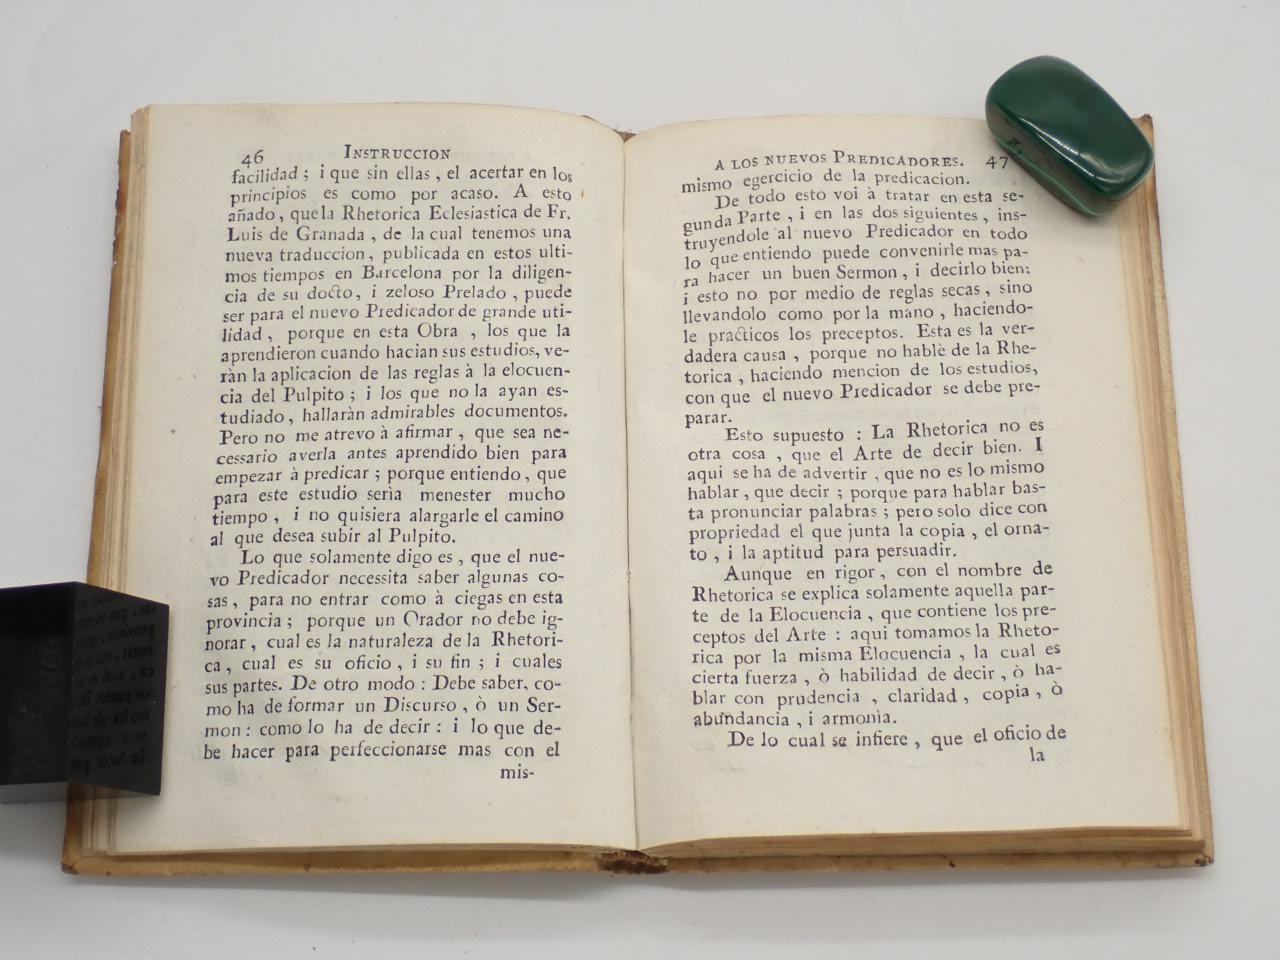 46 INSTRUCCION
facilidad ; i que sin ellas , el acertar en los
principios es como por acaso. A esto
añado , que la Rhetorica Eclesiastica de Fr.
Luis de Granada , de la cual tenemos una
nueva traduccion , publicada en estos ulti-
mos tiempos en Barcelona por la diligen-
cia de su docto, i zeloso Prelado , puede
ser para el nuevo Predicador de grande uti-
lidad , porque en esta Obra , los que la
aprendieron cuando hacian sus estudios, ve-
ràn la aplicacion de las reglas à la elocuen-
cia del Pulpito ; i los que no la ayan es-
tudiado, hallaràn admirables documentos.
Pero no me atrevo à afirmar , que sea ne-
cessario averla antes aprendido bien para
empezar à predicar ; porque entiendo, que
para este estudio serìa menester mucho
tiempo , i no quisiera alargarle el camino
al que desea subir al Pulpito.
Lo que solamente digo es , que el nue-
vo Predicador necessita saber algunas co-
sas , para no entrar como à ciegas en esta
provincia ; porque un Orador no debe ig-
norar , cual es la naturaleza de la Rhetori-
ca , cual es su oficio , i su fin ; i cuales
sus partes. De otro modo : Debe saber, co-
mo ha de formar un Discurso , ò un Ser-
mon : como lo ha de decir : i lo que de-
be hacer para perfeccionarse mas con el
mis-
A LOS NUEVOS PREDICADORES. 47
mismo egercicio de la predicacion.
De todo esto voi à tratar en esta se-
gunda Parte , i en las dos siguientes , ins-
truyendole al nuevo Predicador en todo
lo que entiendo puede convenirle mas pa-
ra hacer un buen Sermon , i decirlo bien:
i esto no por medio de reglas secas , sino
llevandolo como por la mano , haciendo-
le practicos los preceptos. Esta es la ver-
dadera causa , porque no hablè de la Rhe-
torica , haciendo mencion de los estudios,
con que el nuevo Predicador se debe pre-
parar.
Esto supuesto : La Rhetorica no es
otra cosa , que el Arte de decir bien. I
aqui se ha de advertir , que no es lo mismo
hablar , que decir ; porque para hablar bas-
ta pronunciar palabras ; pero solo dice con
propriedad el que junta la copia , el orna-
to , i la aptitud para persuadir.
Aunque en rigor , con el nombre de
Rhetorica se explica solamente aquella par-
te de la Elocuencia , que contiene los pre-
ceptos del Arte : aqui tomamos la Rheto-
rica por la misma Elocuencia , la cual es
cierta fuerza , ò habilidad de decir , ò ha-
blar con prudencia , claridad , copia , ò
abundancia , i armonìa.
De lo cual se infiere , que el oficio de
la